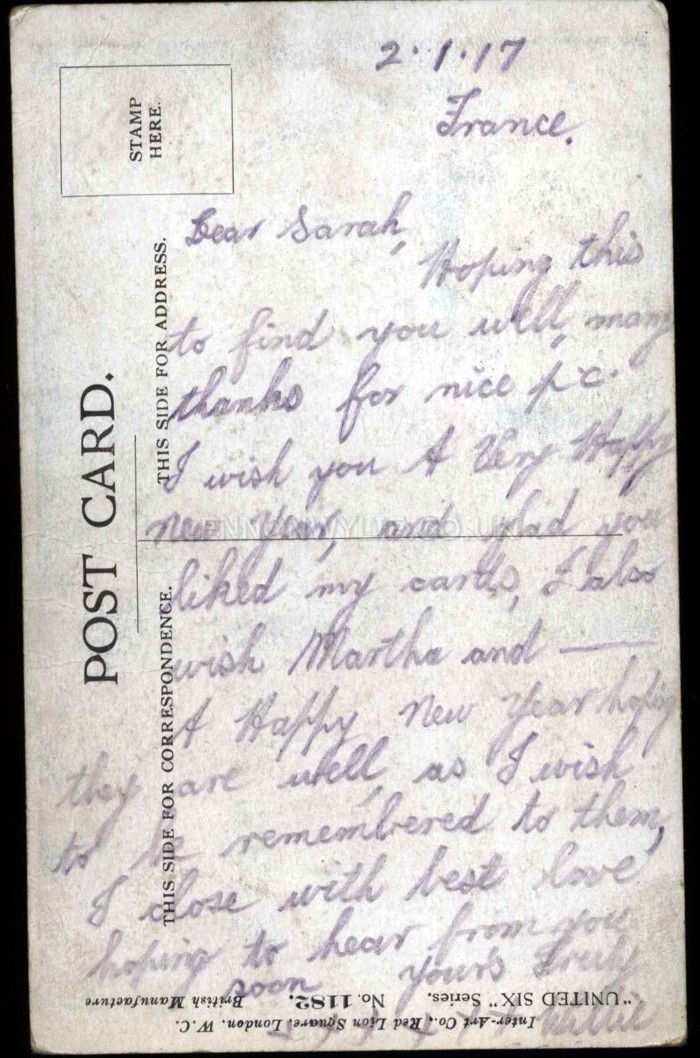 2.1.17
France.
STAMP
HERE.
POST CARD.
THIS SIDE FOR ADDRESS.
THIS SIDE FOR CORRESPONDENCE.
Dear Sarah,
Hoping this
to find you well, many
thanks for nice p.c.
I wish you A Very Happy
new year, and glad you
liked my cards, I also
wish Martha and —
A Happy New Year hoping
they are well, as I wish
to be remembered to them,
I close with best love
hoping to hear from you
soon yours Truly
Willie
"UNITED SIX" Series. No. 1182. British Manufacture
Inter-Art Co., Red Lion Square, London, W.C.